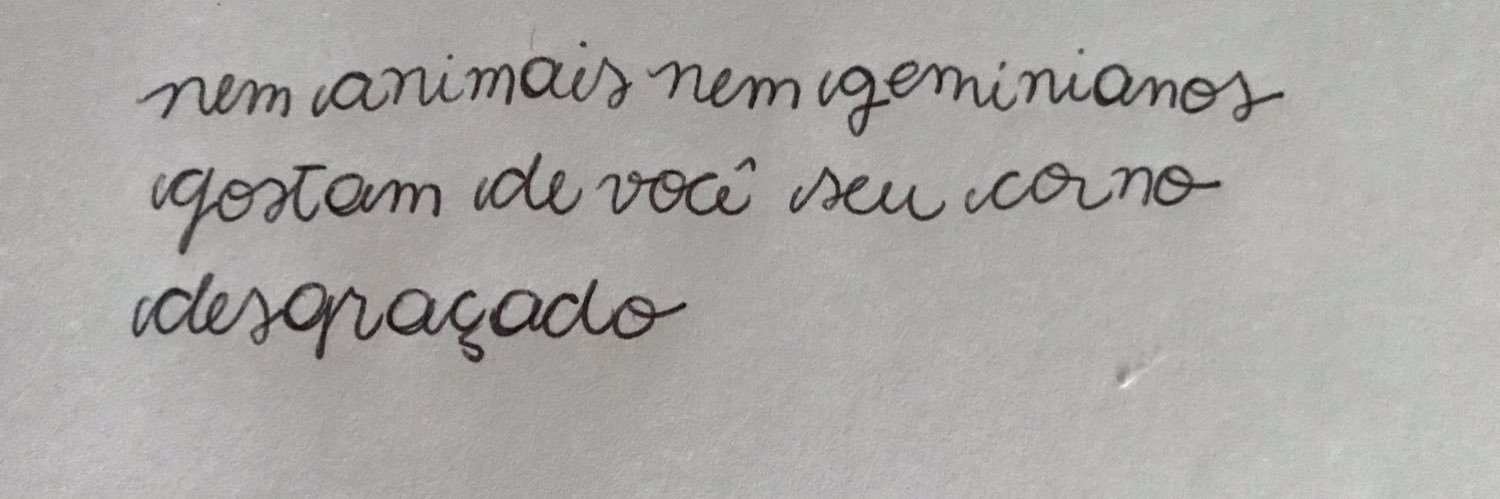 nem animais nem geminianos
gostam de você seu corno
desgraçado